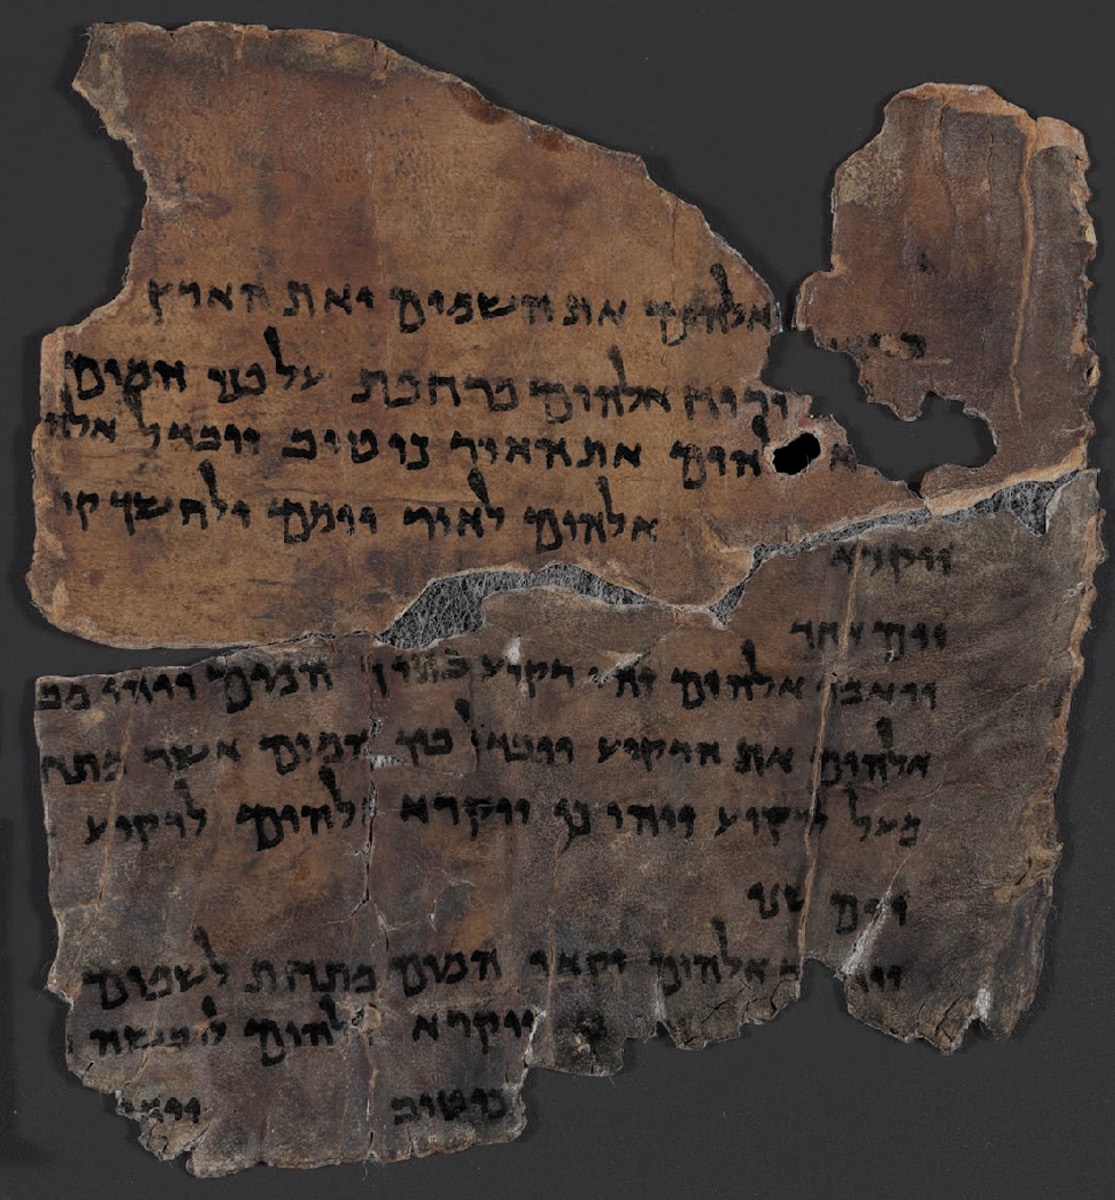 אלהים את השמים ואת הארץ
ורוח אלהים מרחפת על פני המים
אלהים את האור כי טוב ויבדל אלהי
ויקרא אלהים לאור יומם ולחשך קר
יום אחד
ויאמר אלהים יהי רקיע בתוך המים ויהי מב
אלהים את הרקיע ויבדל בין המים אשר מתח
מעל לרקיע ויהי כן ויקרא אלהים לרקיע
יום שני
אלהים יקוו המים מתחת לשמים
ויקרא אלהים
כי טוב